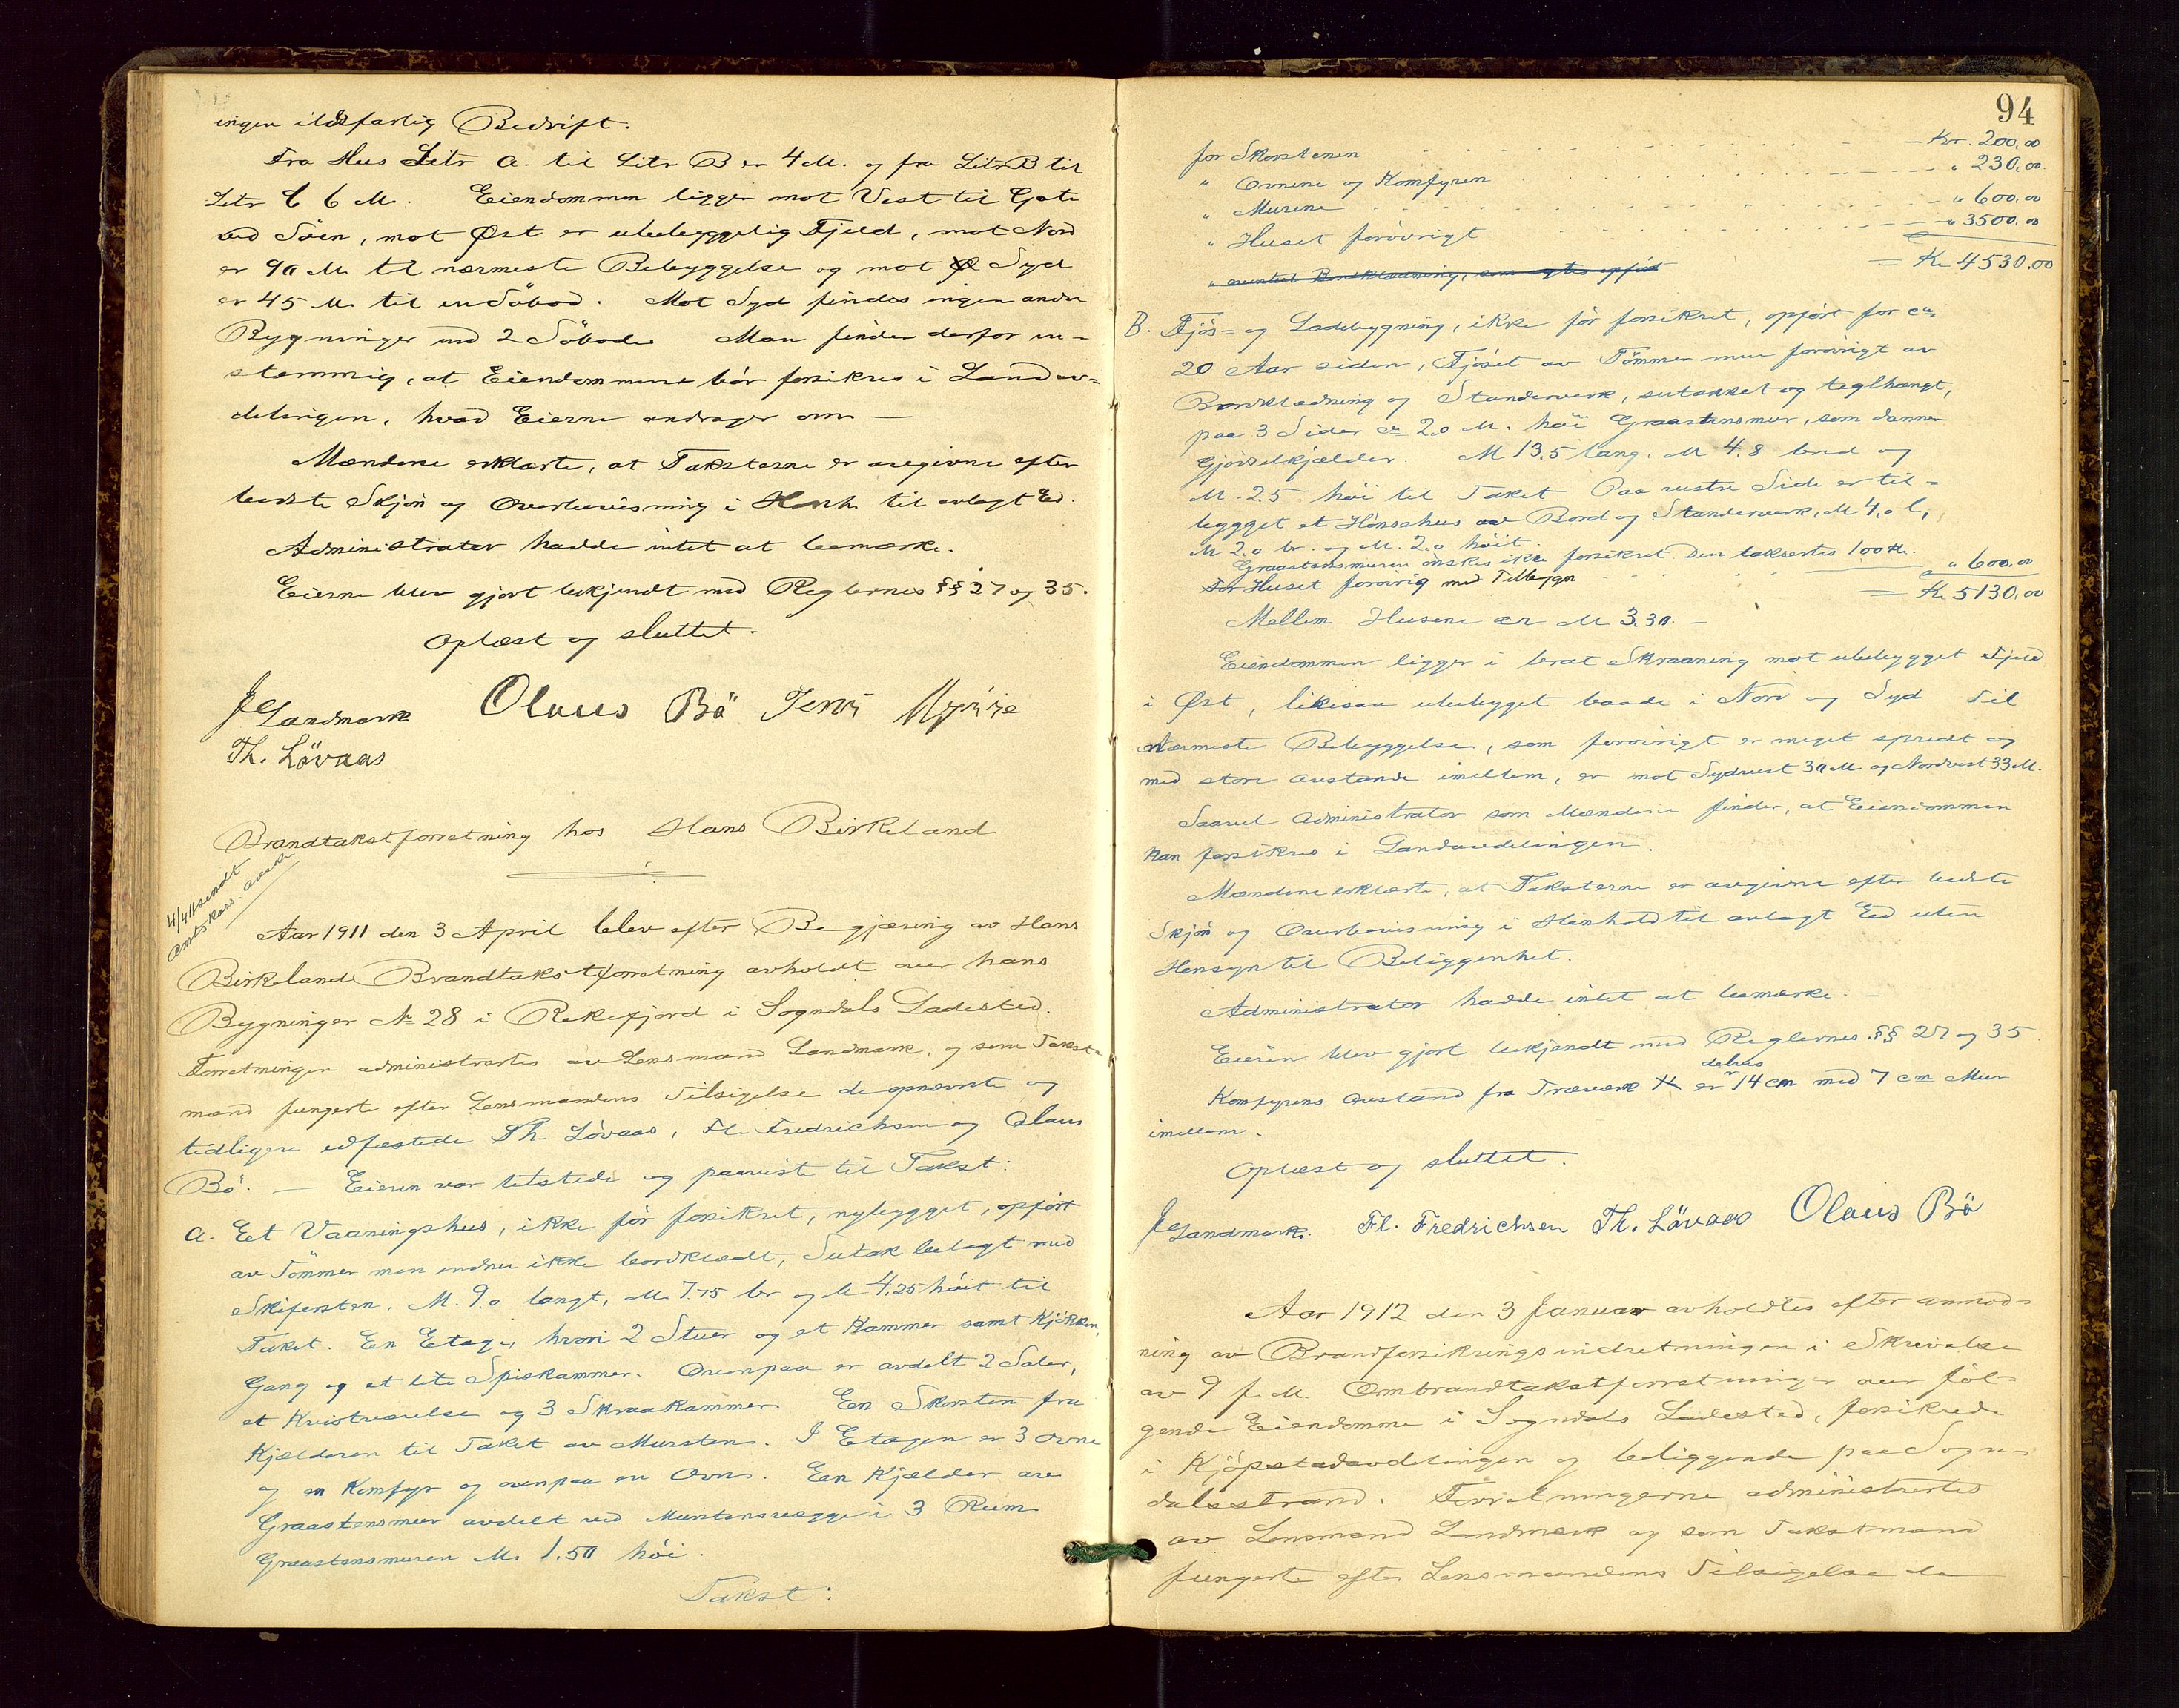 ingen ildsfarlig Bedrift.
Fra Hus Litr A. til Litr B er 4 M. og fra Litr B til
Litr C 6 M. Eiendommen ligger mot Vest til Gate
ved Söen, mot Øst er ubebyggelig Fjeld, mot Nord
er 90 M til nærmeste Bebyggelse og mot Syd
er 45 M til en Söbod. Mot Syd findes ingen andre
Bygninger end 2 Söboder Man finder derfor en-
stemmig, at Eiendommene bör forsikres i Landav-
delingen, hvad Eierne andrager om —
Mændene erklærte, at Taksterne er avgivne efter
bedste Skjön og Overbevisning i Henh. til avlagt Ed.
Administrator hadde intet at bemærke.
Eierne blev gjort bekjendt med Reglernes §§ 27 og 35.
Oplæst og sluttet.
J Landmark Olaus Bö
Th. Lövaas
Brandtakstforretning hos Hans Birkeland
4/4 11 sendt
Amtskass.
Aar 1911 den 3 April blev efter Begjæring av Hans
Birkeland Brandtakstforretning avholdt over hans
Bygninger No 28 i Rekefjord i Sogndals Ladested.
Forretningen administrertes av Lensmand Landmark, og som Takst-
mænd fungerte efter Lensmandens Tilsigelse de opnævnte og
tidligere edfæstede Th Lövaas, Fl. Fredrichsen og Olaus
Bö. — Eieren var tilstede og paaviste til Takst:
A. Et Vaaningshus, ikke för forsikret, nybygget, opfört
av Tömmer men endnu ikke bordklædt, Sutak belagt med
Skifersten, M. 9.0 langt, M. 7.75 br og M 4.25 höit til
Taket. En Etage, hvori 2 Stuer og et Kammer samt Kjökken,
Gang og et lite Spiskammer. Ovenpaa er avdelt 2 Saler,
et Kvistværelse og 3 Skraakammer. En Skorsten fra
Kjælderen til Taket av Mursten. I Etagen er 3 Ovne
og en Komfyr og ovenpaa en Ovn. En Kjælder av
Graastensmur avdelt ved Murstensvægge i 3 Rum
Graastensmuren M. 1.50 höi.
Takst:
94
for Skorstenen — Kr. 200,00
" Ovnene og Komfyren — " 230,00.
" Murene — " 600,00
" Huset forövrigt — " 3500,00
= Kr 4530.00
B. Fjös- og Ladebygning, ikke för forsikret, opfört for ca
20 Aar siden, Fjöset av Tömmer men forövrigt av
Bordklædning og Standerverk, sutakket og teglhængt,
paa 3 Sider ca 2,0 M. höi Graastensmur, som danner
Gjödselkjælder. M 13,5 lang, M 4.8 bred og
M. 2.5 höi til Taket. Paa vestre Side er til-
bygget et Hönsehus av Bord og Standerverk, M 4,0 l,
M 2.0 br. og M. 2.0 höit.
Graastensmuren önskes ikke forsikret. Den taksertes 100 Kr.
For Huset forövrig med Tilbygn — " 600.00
= Kr 5130,00
Mellem Husene er M 3.30. —
Eiendommen ligger i brat Skraaning mot ubebygget Fjeld
i Øst, likesaa ubebygget baade i Nord og Syd Til
nærmeste Bebyggelse, som forövrigt er meget spredt og
med store avstande imellem, er mot Sydvest 30 M og Nordvest 33 M.
Saavel Administrator som Mændene finder, at Eiendommen
kan forsikres i Landavdelingen.
Mændene erklærte, at Taksterne er avgivne efter bedste
Skjön og Overbevisning i Henhold til avlagt Ed uten
Hensyn til Beliggenhet.
Administrator hadde intet at bemærke. —
Eieren blev gjort bekjendt med Reglernes §§ 27 og 35
delvis
Komfyrens Avstand fra Træverk er 14 cm med 7 cm Mur
imellem.
Oplæst og sluttet.
J Landmark. Fl. Fredrichsen Th. Lövaas Olaus Bö
Aar 1912 den 3 Januar avholdtes efter anmod-
ning av Brandforsikringsindretningen i Skrivelse
av 9 f. M. Ombrandtakstforretninger over föl-
gende Eiendomme i Sogndals Ladested, forsikrede
i Kjöpstadavdelingen og beliggende paa Sogn-
dalsstrand. Forretningerne administrertes
av Lensmand Landmark og som Takstmænd
fungerte efter Lensmandens Tilsigelse de